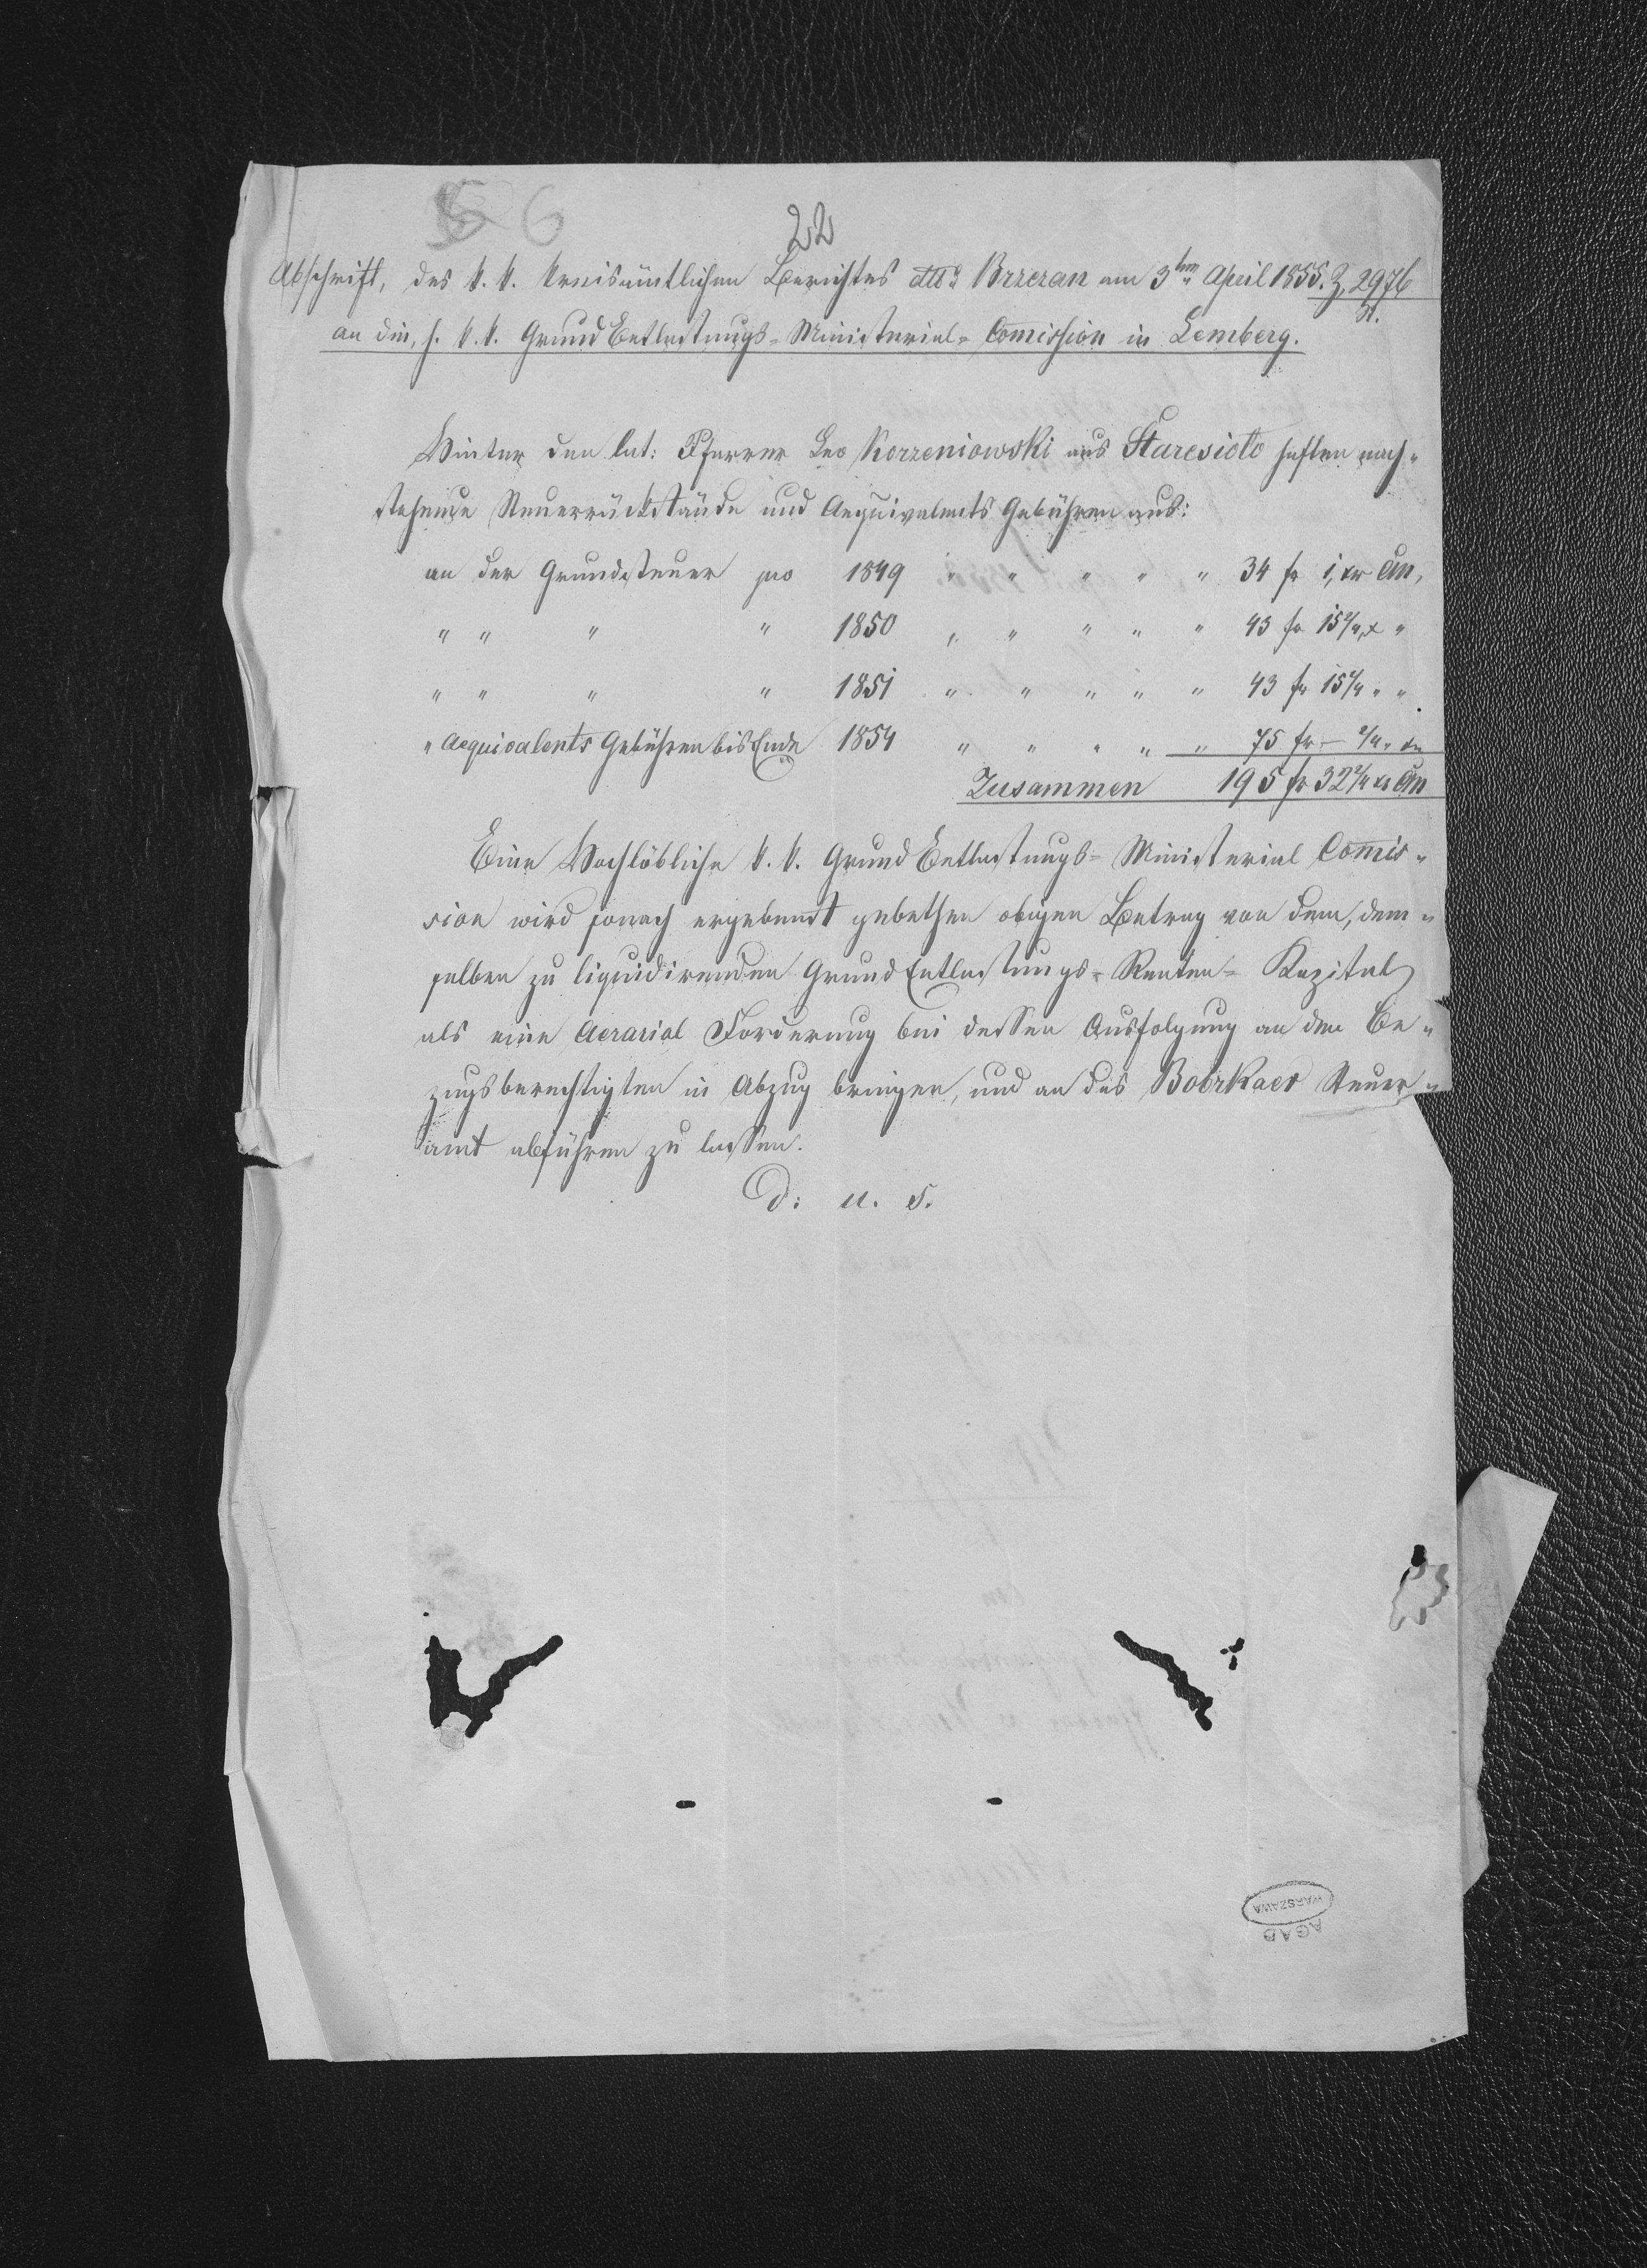 6
22
Abschrift, des k. k. Kreisämtlichen Berichtes dtto Brzezan am 3ten April 1855. Z. 2976
an die, h. k. k. Grund Entlastungs-Ministerial-Comission in Lemberg.
Hinter den lat: Pfarrer Leo Korzeniowski aus Staresioło haften nach-
stehende Steuerrückstände und Aequivalents Gebühren aus:
an der Grundsteuer pro 1849 " " " " " 34 fr 1, xr Cm,
" " " " 1850 " " " " " 43 fr 15 2/4 x "
" " " " 1851 " " " " " 43 fr 15 2/4 " "
" Aequivalents Gebühren bis Ende 1854 " " " " " 75 fr – 2/4 " xr
Zusammen 195 fr 32 2/4 xr Cm
Eine Hochlöbliche k. k. Grund Entlastungs-Ministerial Comis-
sion wird sonach ergebenst gebethen obigen Betrag von dem, dem-
selben zu liquidirenden Grund Entlastungs-Renten-Kapital
als eine Aerarial Forderung bei dessen Ausfolgung an den Be-
zugsberechtigten in Abzug bringen, und an das Bobrkaer Steuer-
amt abführen zu lassen.
D: u. s.
WARSZAWA
AGAD